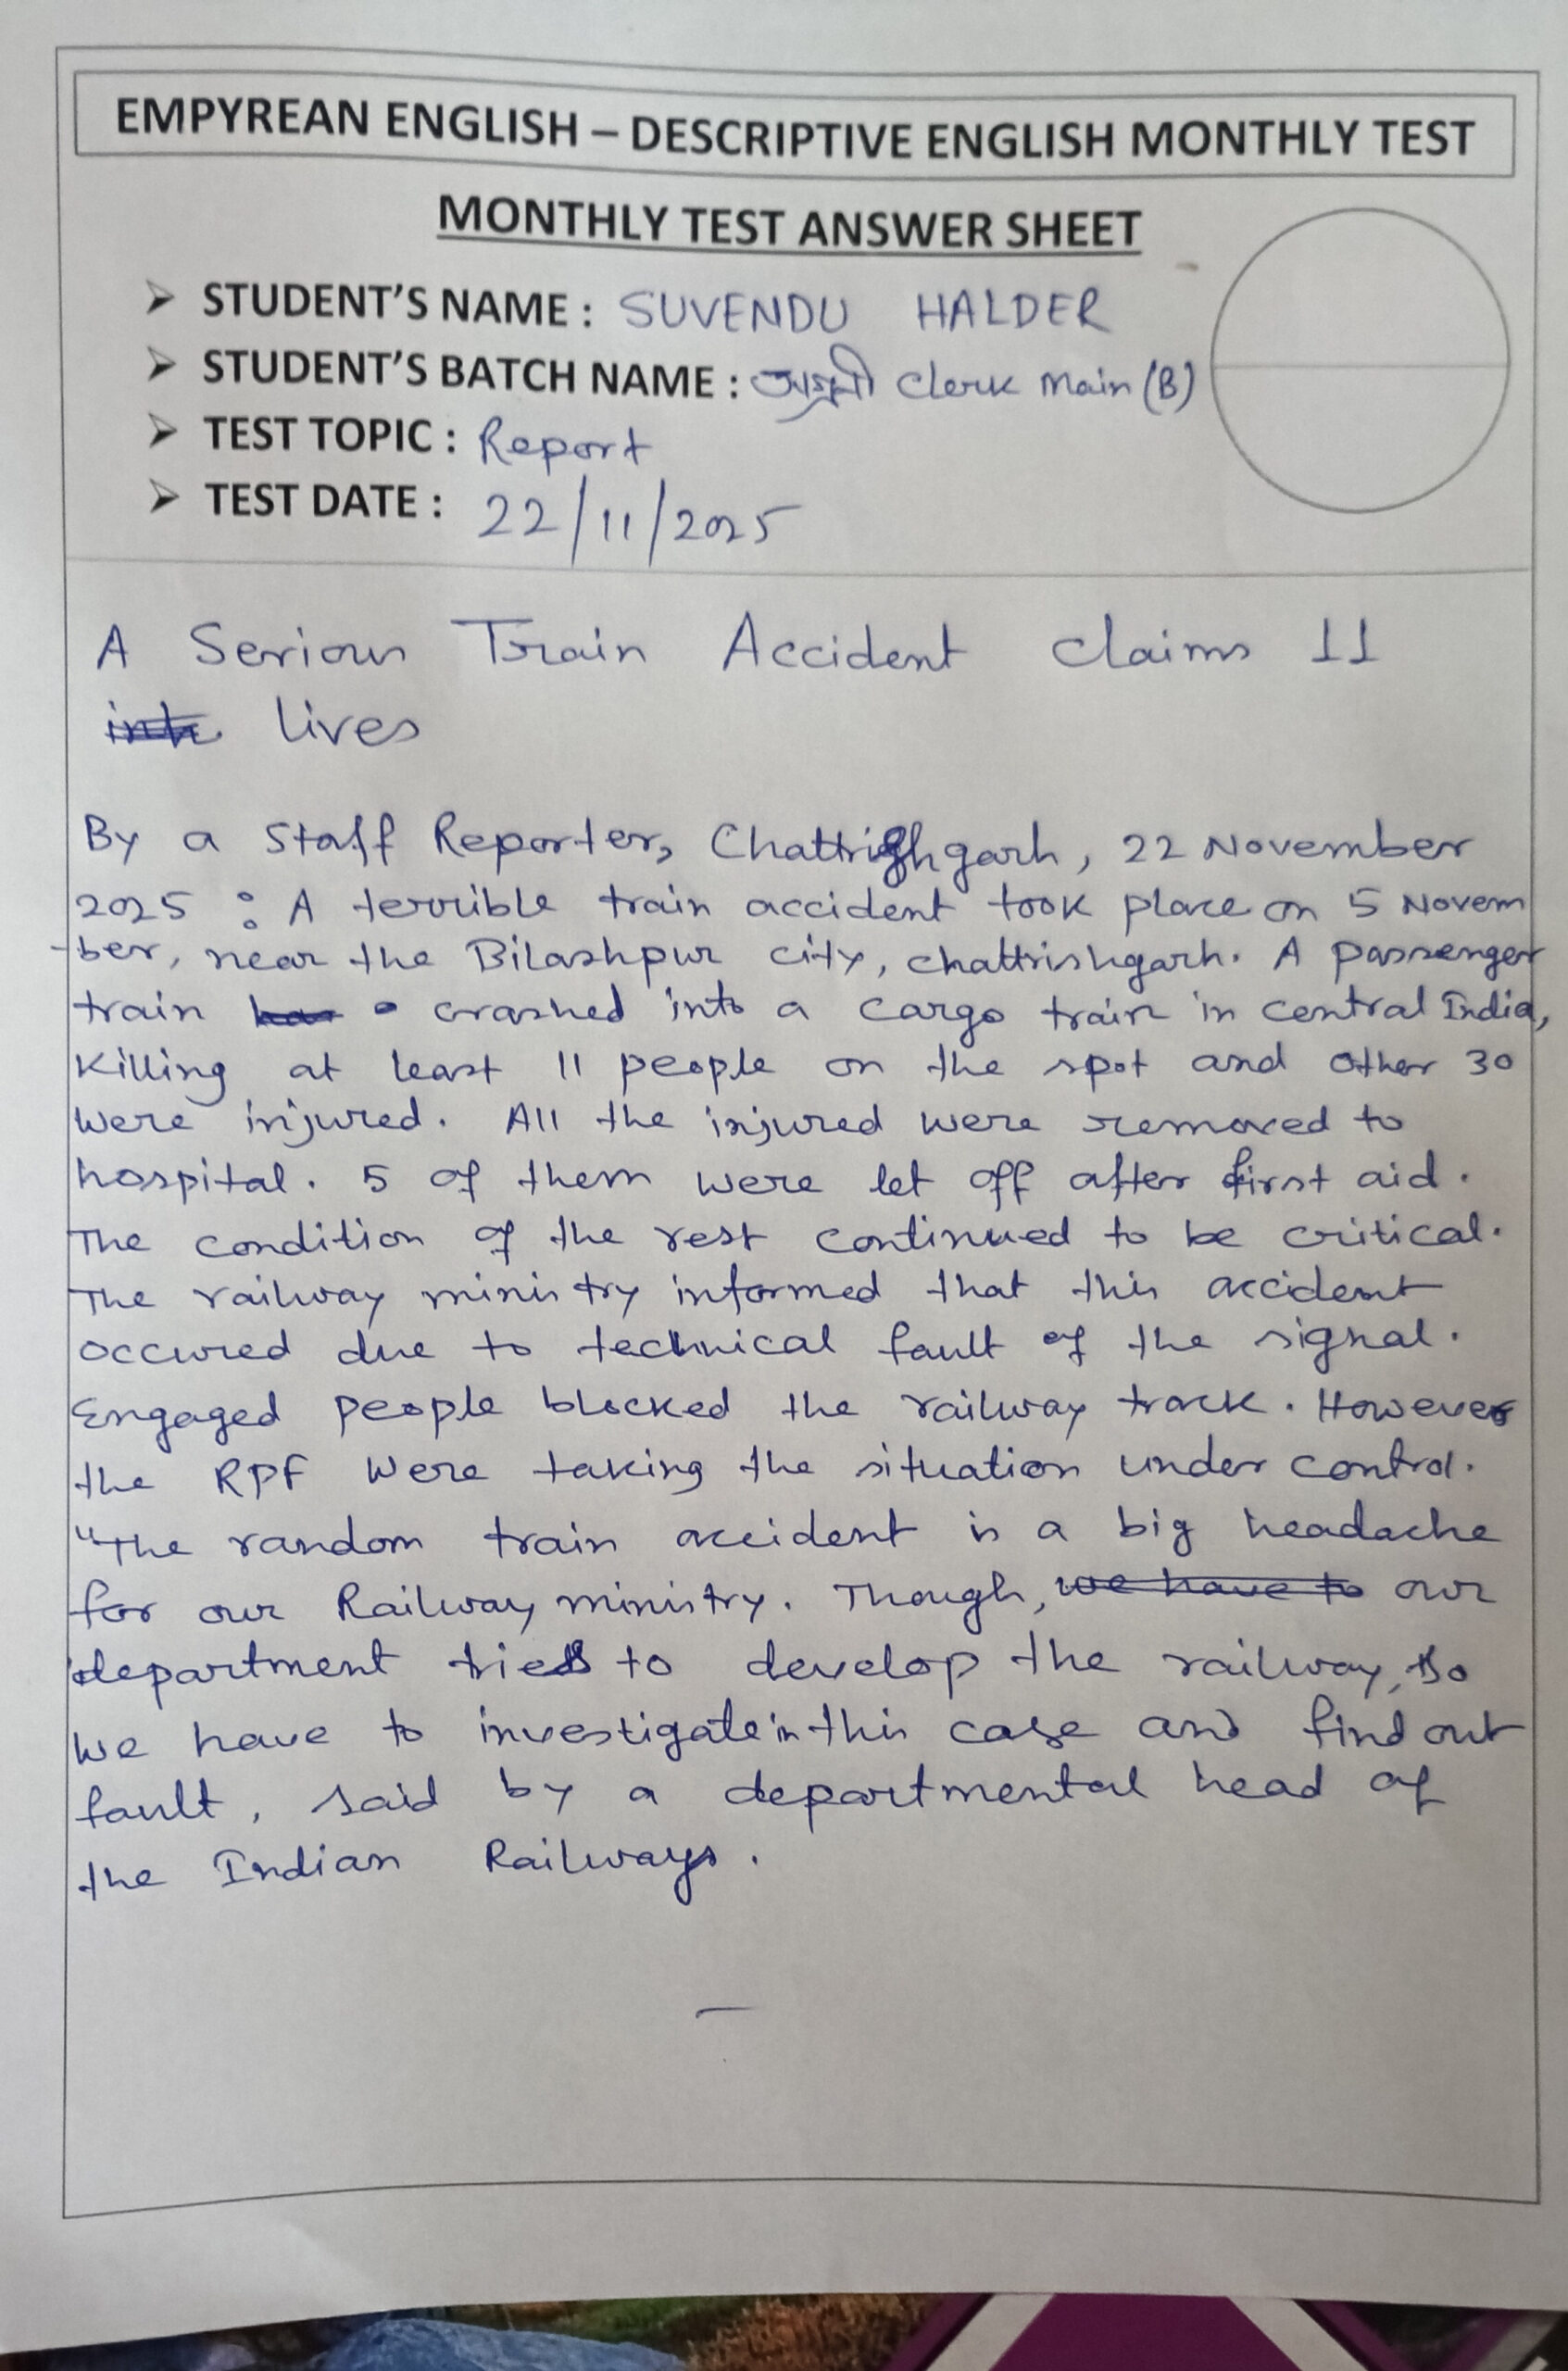 EMPYREAN ENGLISH – DESCRIPTIVE ENGLISH MONTHLY TEST
MONTHLY TEST ANSWER SHEET
➤ STUDENT'S NAME : SUVENDU HALDER
➤ STUDENT'S BATCH NAME : Clerk Main (B)
➤ TEST TOPIC : Report
➤ TEST DATE : 22/11/2025
A Serious Train Accident claims 11
lives
By a Staff Reporter, Chattrishgarh, 22 November
2025 : A terrible train accident took place on 5 Novem
-ber, near the Bilashpur city, chattrishgarh. A passenger
train crashed into a cargo train in central India,
killing at least 11 people on the spot and other 30
were injured. All the injured were removed to
hospital. 5 of them were let off after first aid.
The condition of the rest continued to be critical.
The railway ministry informed that this accident
occured due to technical fault of the signal.
Engaged people blocked the railway track. However
the RPF were taking the situation under control.
"The random train accident is a big headache
for our Railway ministry. Though, we have to our
department tries to develop the railway, so
we have to investigate in this case and find out
fault, said by a departmental head of
the Indian Railways.